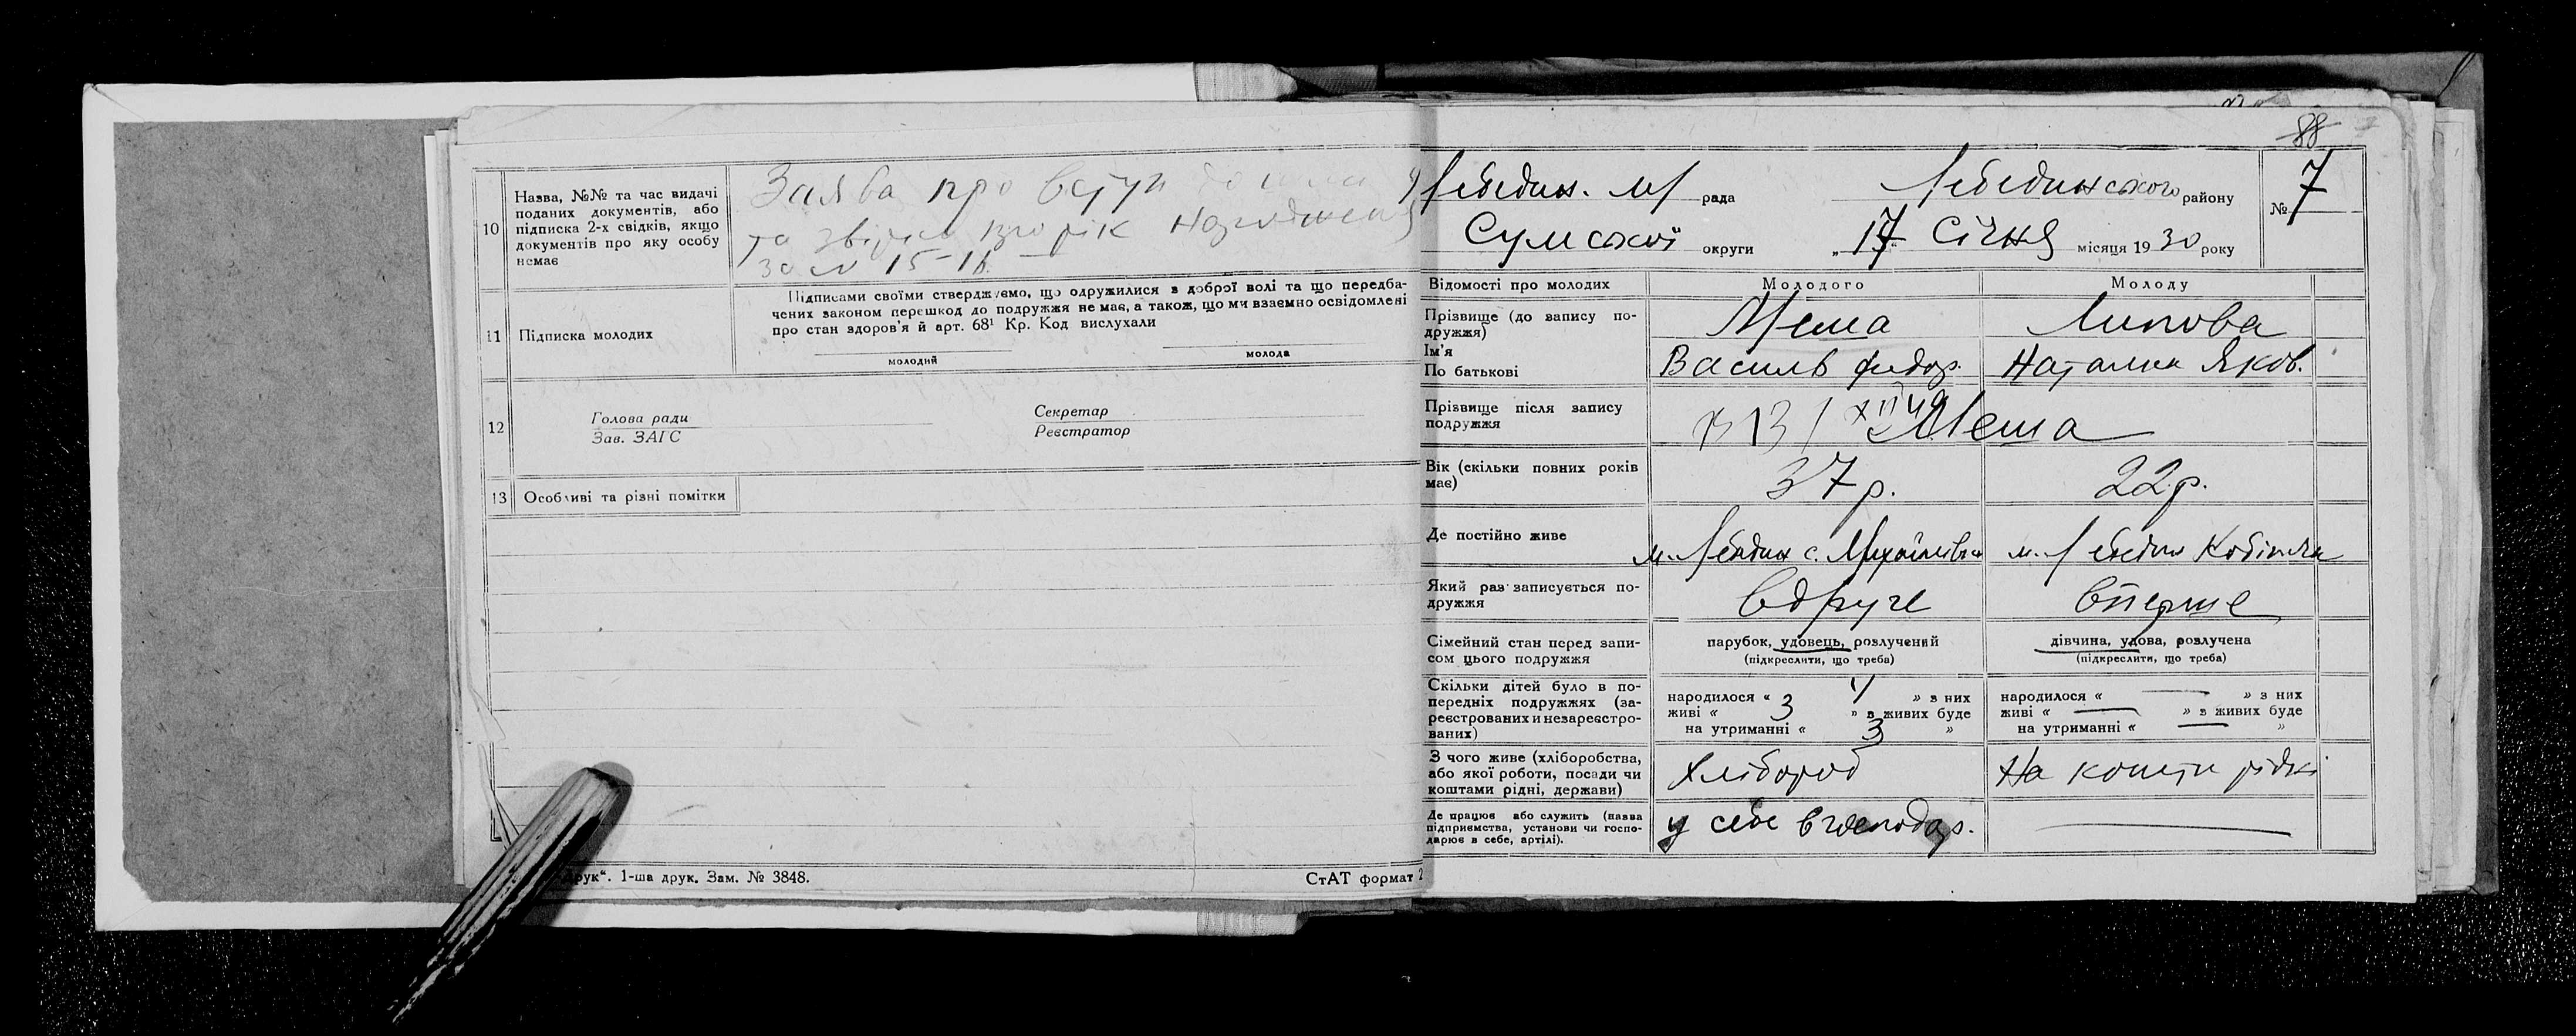 10 Назва, №№ та час видачі
поданих документів, або
підписка 2-х свідків, якщо
документів про яку особу
немає
Заява про вступ до
та про рік народження
за № 15-16
11 Підписка молодих
Підписами своїми стверджуємо, що одружилися з доброї волі та що передба-
чених законом перешкод до подружжя не має, а також, що ми взаємно освідомлені
про стан здоров'я й арт. 68¹ Кр. Код вислухали
молодий молода
12 Голова ради
Зав. ЗАГС
Секретар
Реєстратор
13 Особливі та різні помітки
друк“. 1-ша друк. Зам. № 3848.
СтАТ формат 2
88
Лебедин. м/ рада Лебединського району
№ 7
Сумської округи „17“ Січня місяця 1930 року
Відомості про молодих Молодого Молоду
Прізвище (до запису по-
дружжя)
Меша Липова
Ім'я
По батькові
Василь Федор. Наталка Яков.
Прізвище після запису
подружжя
Меша
Вік (скільки повних років
має)
37 р. 22 р.
Де постійно живе
м. Лебедин с. Михайлівка м. Лебедин
Який раз записується по-
дружжя
Вдруге Вперше
Сімейний стан перед запи-
сом цього подружжя
парубок, удовець, розлучений
(підкреслити, що треба)
дівчина, удова, розлучена
(підкреслити, що треба)
Скільки дітей було в по-
передніх подружжях (за-
реєстрованих и незареєстро-
ваних)
народилося “ 4 ” з них
живі “ 3 ” з живих буде
на утриманні “ 3 ”
народилося “ — ” з них
живі “ — ” з живих буде
на утриманні “ — ”
З чого живе (хліборобства,
або якої роботи, посади чи
коштами рідні, держави)
Хлібороб На кошти рідні
Де працює або служить (назва
підприємства, установи чи госпо-
дарює в себе, артілі).
у себе в господар. —